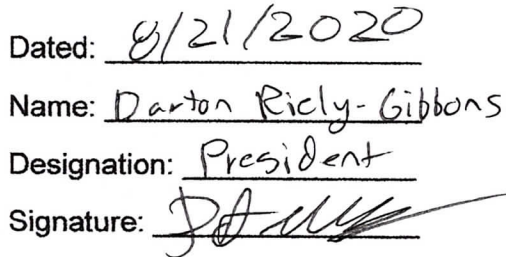 Dated: 8/21/2020
Name: Darton Riely-Gibbons
Designation: President
Signature: